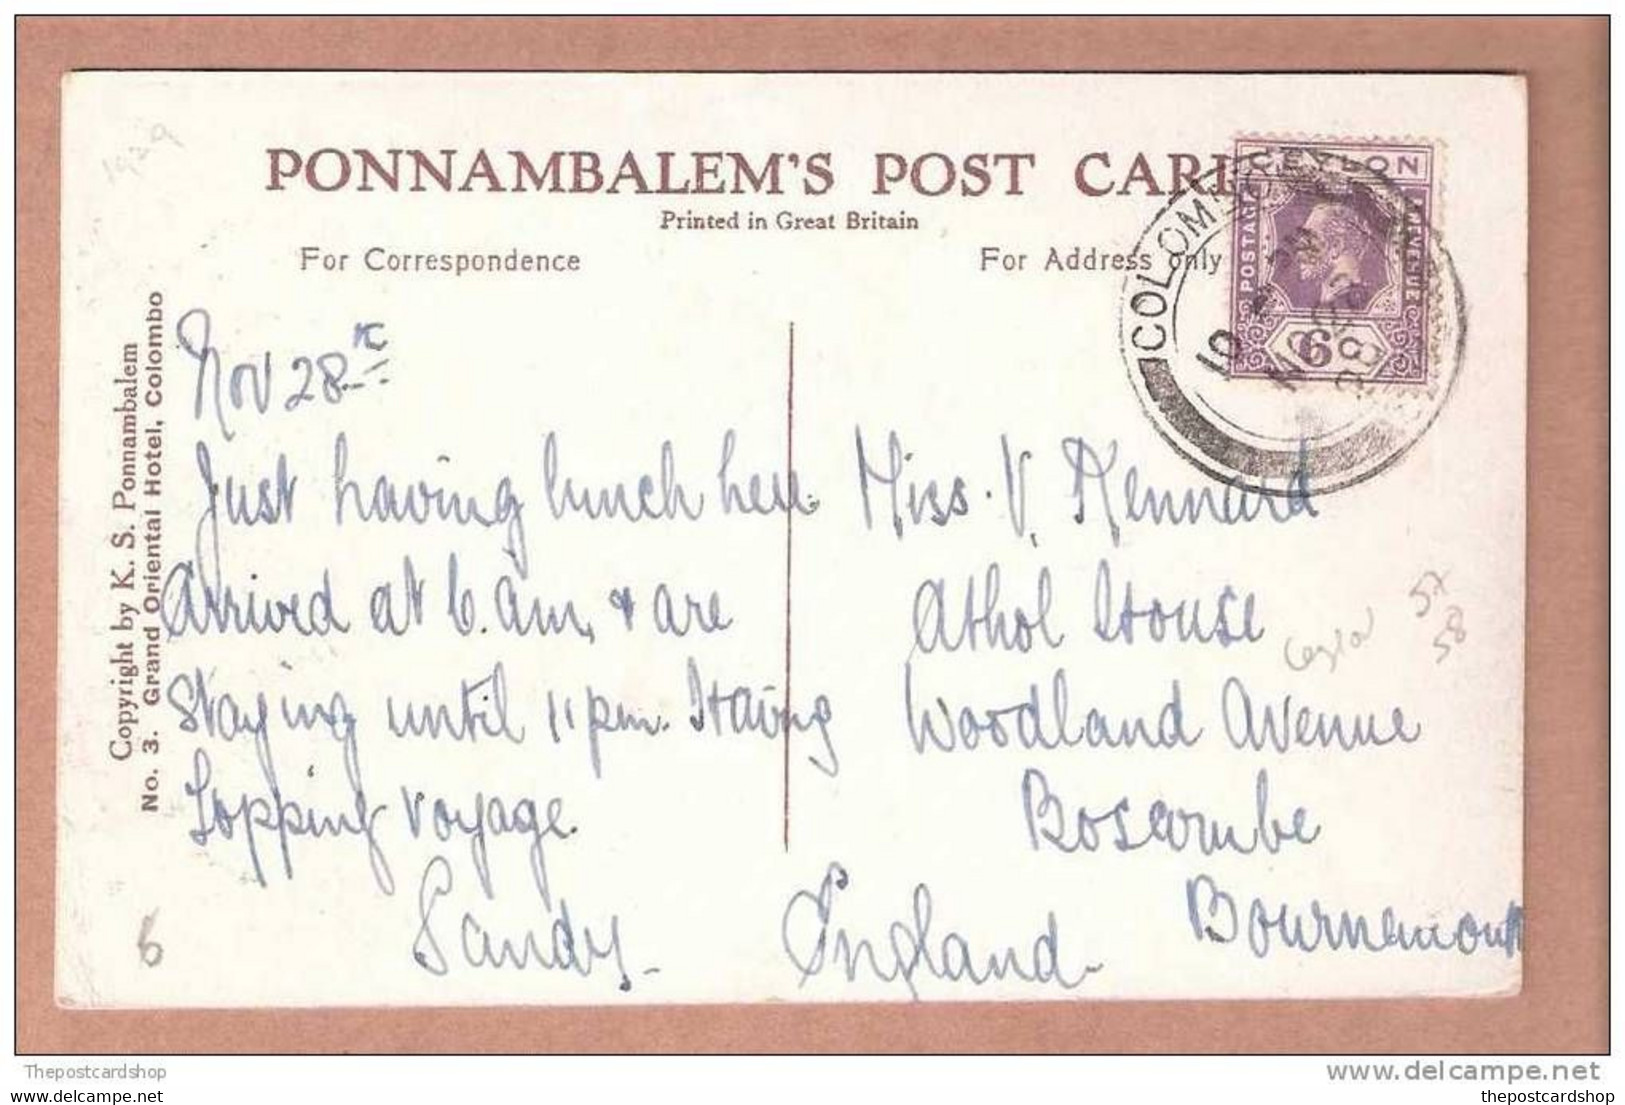 PONNAMBALEM'S POST CARD
Printed in Great Britain
For Correspondence
For Address only
CEYLON
POSTAGE
REVENUE
6
COLOMBO
Copyright by K. S. Ponnambalem
No. 3. Grand Oriental Hotel, Colombo
1929
Nov 28
Just having lunch here
Arrived at 6.am, & are
Staying until 11 pm. Having
Topping voyage.
Sandy
Miss. V. Kennard
Athol House
Woodland Avenue
Boscombe
Bournemouth
England
Ceylon
57
58
6
Thepostcardshop
www.delcampe.net
thepostcardshop